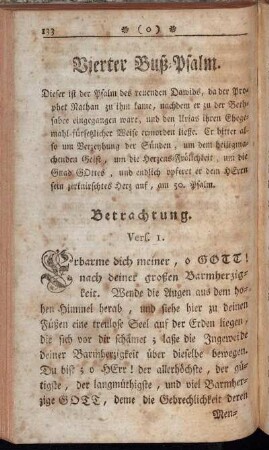 133 * (o) *
Vierter Buß-Psalm.
Dieser ist der Psalm des reuenden Dawids, da der Pro-
phet Nathan zu ihm kame, nachdem er zu der Beth-
sabee eingegangen ware, und den Urias ihren Ehege-
mahl fürsetzlicher Weise ermorden liesse. Er bittet al-
so um Verzeyhung der Sünden, um dem heiligma-
chenden Geist, um die Hertzens-Frölichkeit, um die
Gnad GOttes, und endlich opferet er dem HErrn
sein zerknirschtes Hertz auf, am 50. Psalm.
Betrachtung.
Vers. 1.
Erbarme dich meiner, o GOTT!
nach deiner großen Barmherzig-
keit. Wende die Augen aus dem ho-
hen Himmel herab, und siehe hier zu deinen
Füßen eine treulose Seel auf der Erden liegen,
die sich vor dir schämet; lasse die Ingeweide
deiner Barmherzigkeit über dieselbe bewegen.
Du bist; o HErr! der allerhöchste, der gü-
tigste, der langmüthigste, und viel Barmher-
zige GOTT, deme die Gebrechlichkeit deren
Men-